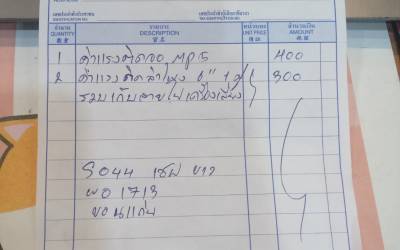 เลขประจำตัวประชาชน
IDENTIFICATION NO.
เลขประจำตัวผู้เสียภาษีอากร
จำนวน รายการ หน่วยละ จำนวนเงิน
QUANTITY DESCRIPTION UNIT PRICE AMOUNT
數量 貨名 單價 金額
1 ค่าแรงติดจอ MP5 400
2 ค่าแรงติดลำโพง 6" 1 คู่ 300
รวมเก็บสายไฟเครื่องเสียง
S044 เชฟ ขาว
ผอ 1713
ขอนแก่น